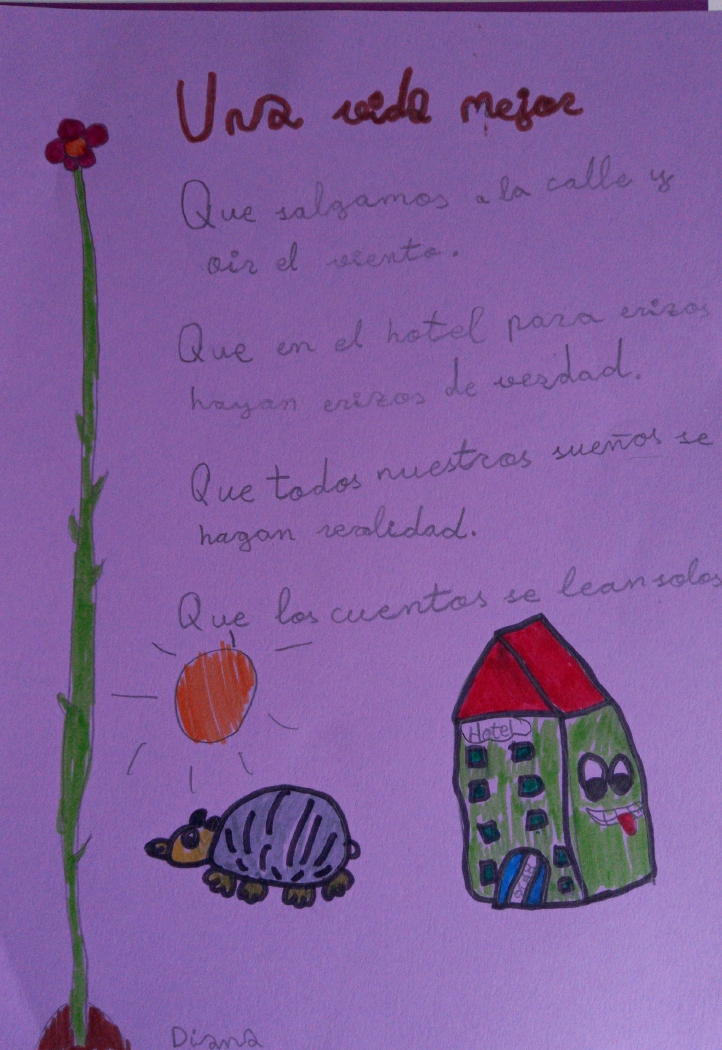 Una vida mejor
Que salgamos a la calle y
oir el viento.
Que en el hotel para erizos
hayan erizos de verdad.
Que todos nuestros sueños se
hagan realidad.
Que los cuentos se lean solos
Hotel
Diana